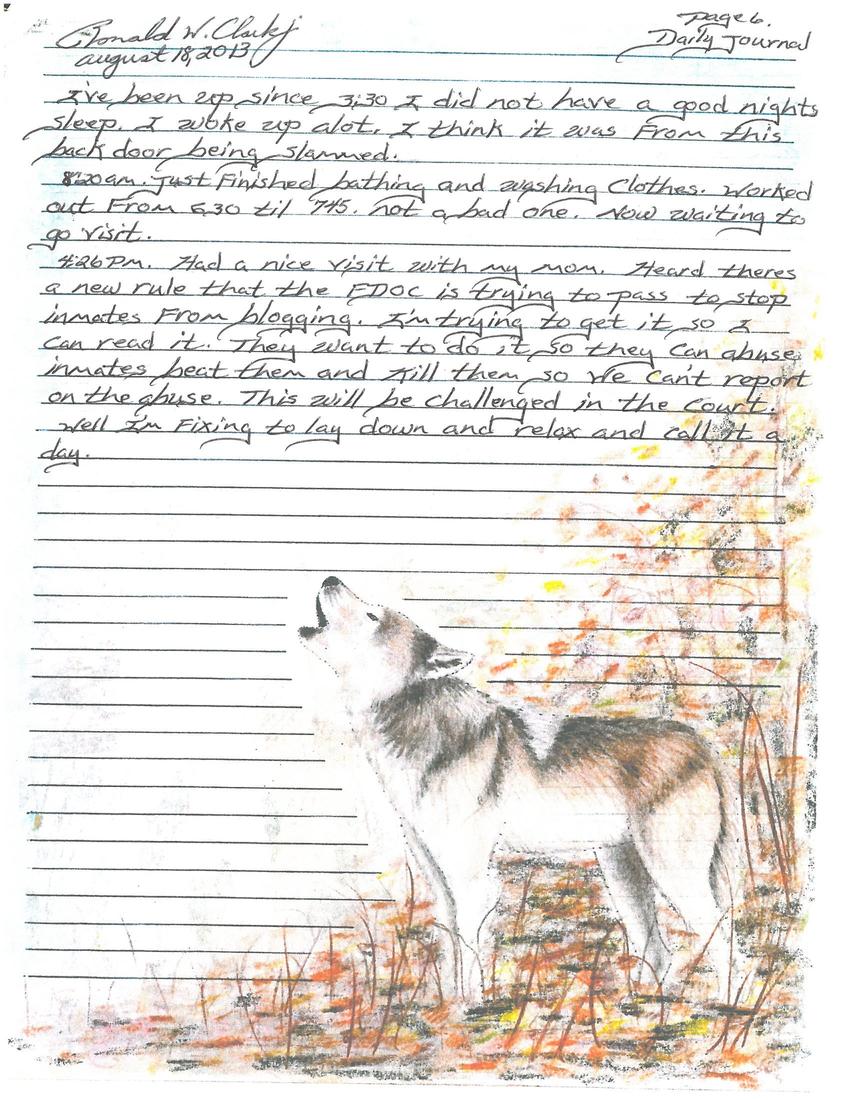 Ronald W. Clark j
page 6.
Daily Journal
august 18, 2013
I've been up since 3:30 I did not have a good nights
sleep. I woke up alot. I think it was From this
back door being slammed.
8:20 am. Just Finished bathing and washing Clothes. Worked
out From 6:30 til 745. not a bad one. Now waiting to
go visit.
4:26 PM. Had a nice visit with my mom. Heard theres
a new rule that the FDOC is trying to pass to stop
inmates From blogging. I'm trying to get it so I
can read it. They want to do it so they can abuse
inmates beat them and Kill them so we can't report
on the abuse. This will be challenged in the court.
Well I'm Fixing to lay down and relax and call it a
day.